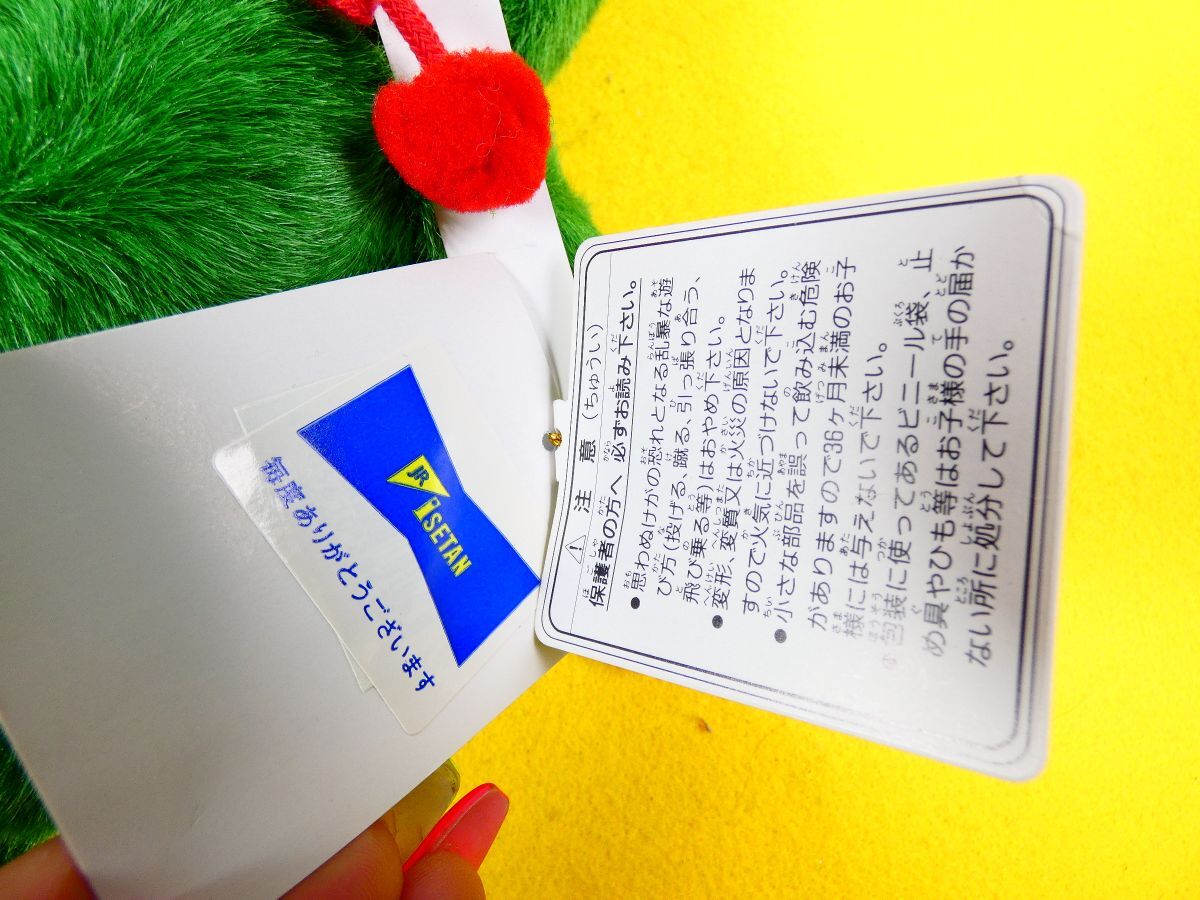 毎度ありがとうございます
JR
ISETAN
⚠ 注 意 (ちゅうい)
保護者の方へ 必ずお読み下さい。
●思わぬけがの恐れとなる乱暴な遊
び方(投げる、蹴る、引っ張り合う、
飛び乗る等)はおやめ下さい。
●変形、変質又は火災の原因となりま
すので火気に近づけないで下さい。
●小さな部品を誤って飲み込む危険
がありますので36ヶ月未満のお子
様には与えないで下さい。
包装に使ってあるビニール袋、止
め具やひも等はお子様の手の届か
ない所に処分して下さい。